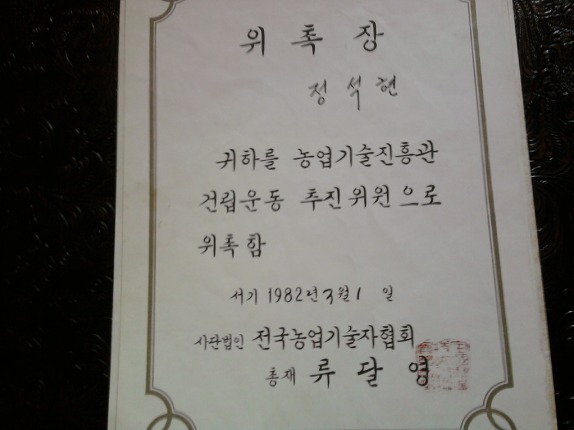 위촉장
정석현
귀하를 농업기술진흥관
건립운동 추진위원으로
위촉함
서기 1982년 3월 1 일
사단법인 전국농업기술자협회
총재 류달영